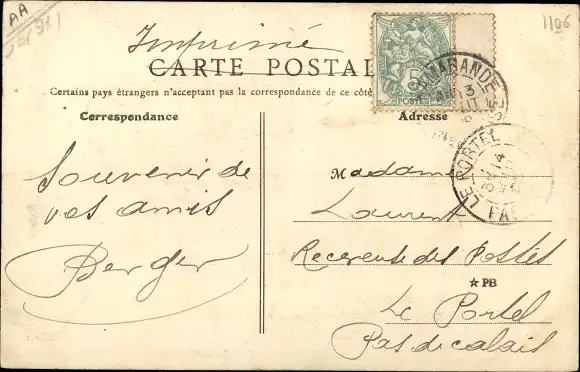 AA
1106
Imprimé
CARTE POSTAL
Certains pays étrangers n'acceptent pas la correspondance de ce côté
Correspondance
Adresse
5
POSTE
MARANDE
3
LE PORTEL
14
Souvenir de
vos amis
Berger
Madame
Laurent
Receveuse des Postes
★PB
Le Portel
Pas de calais